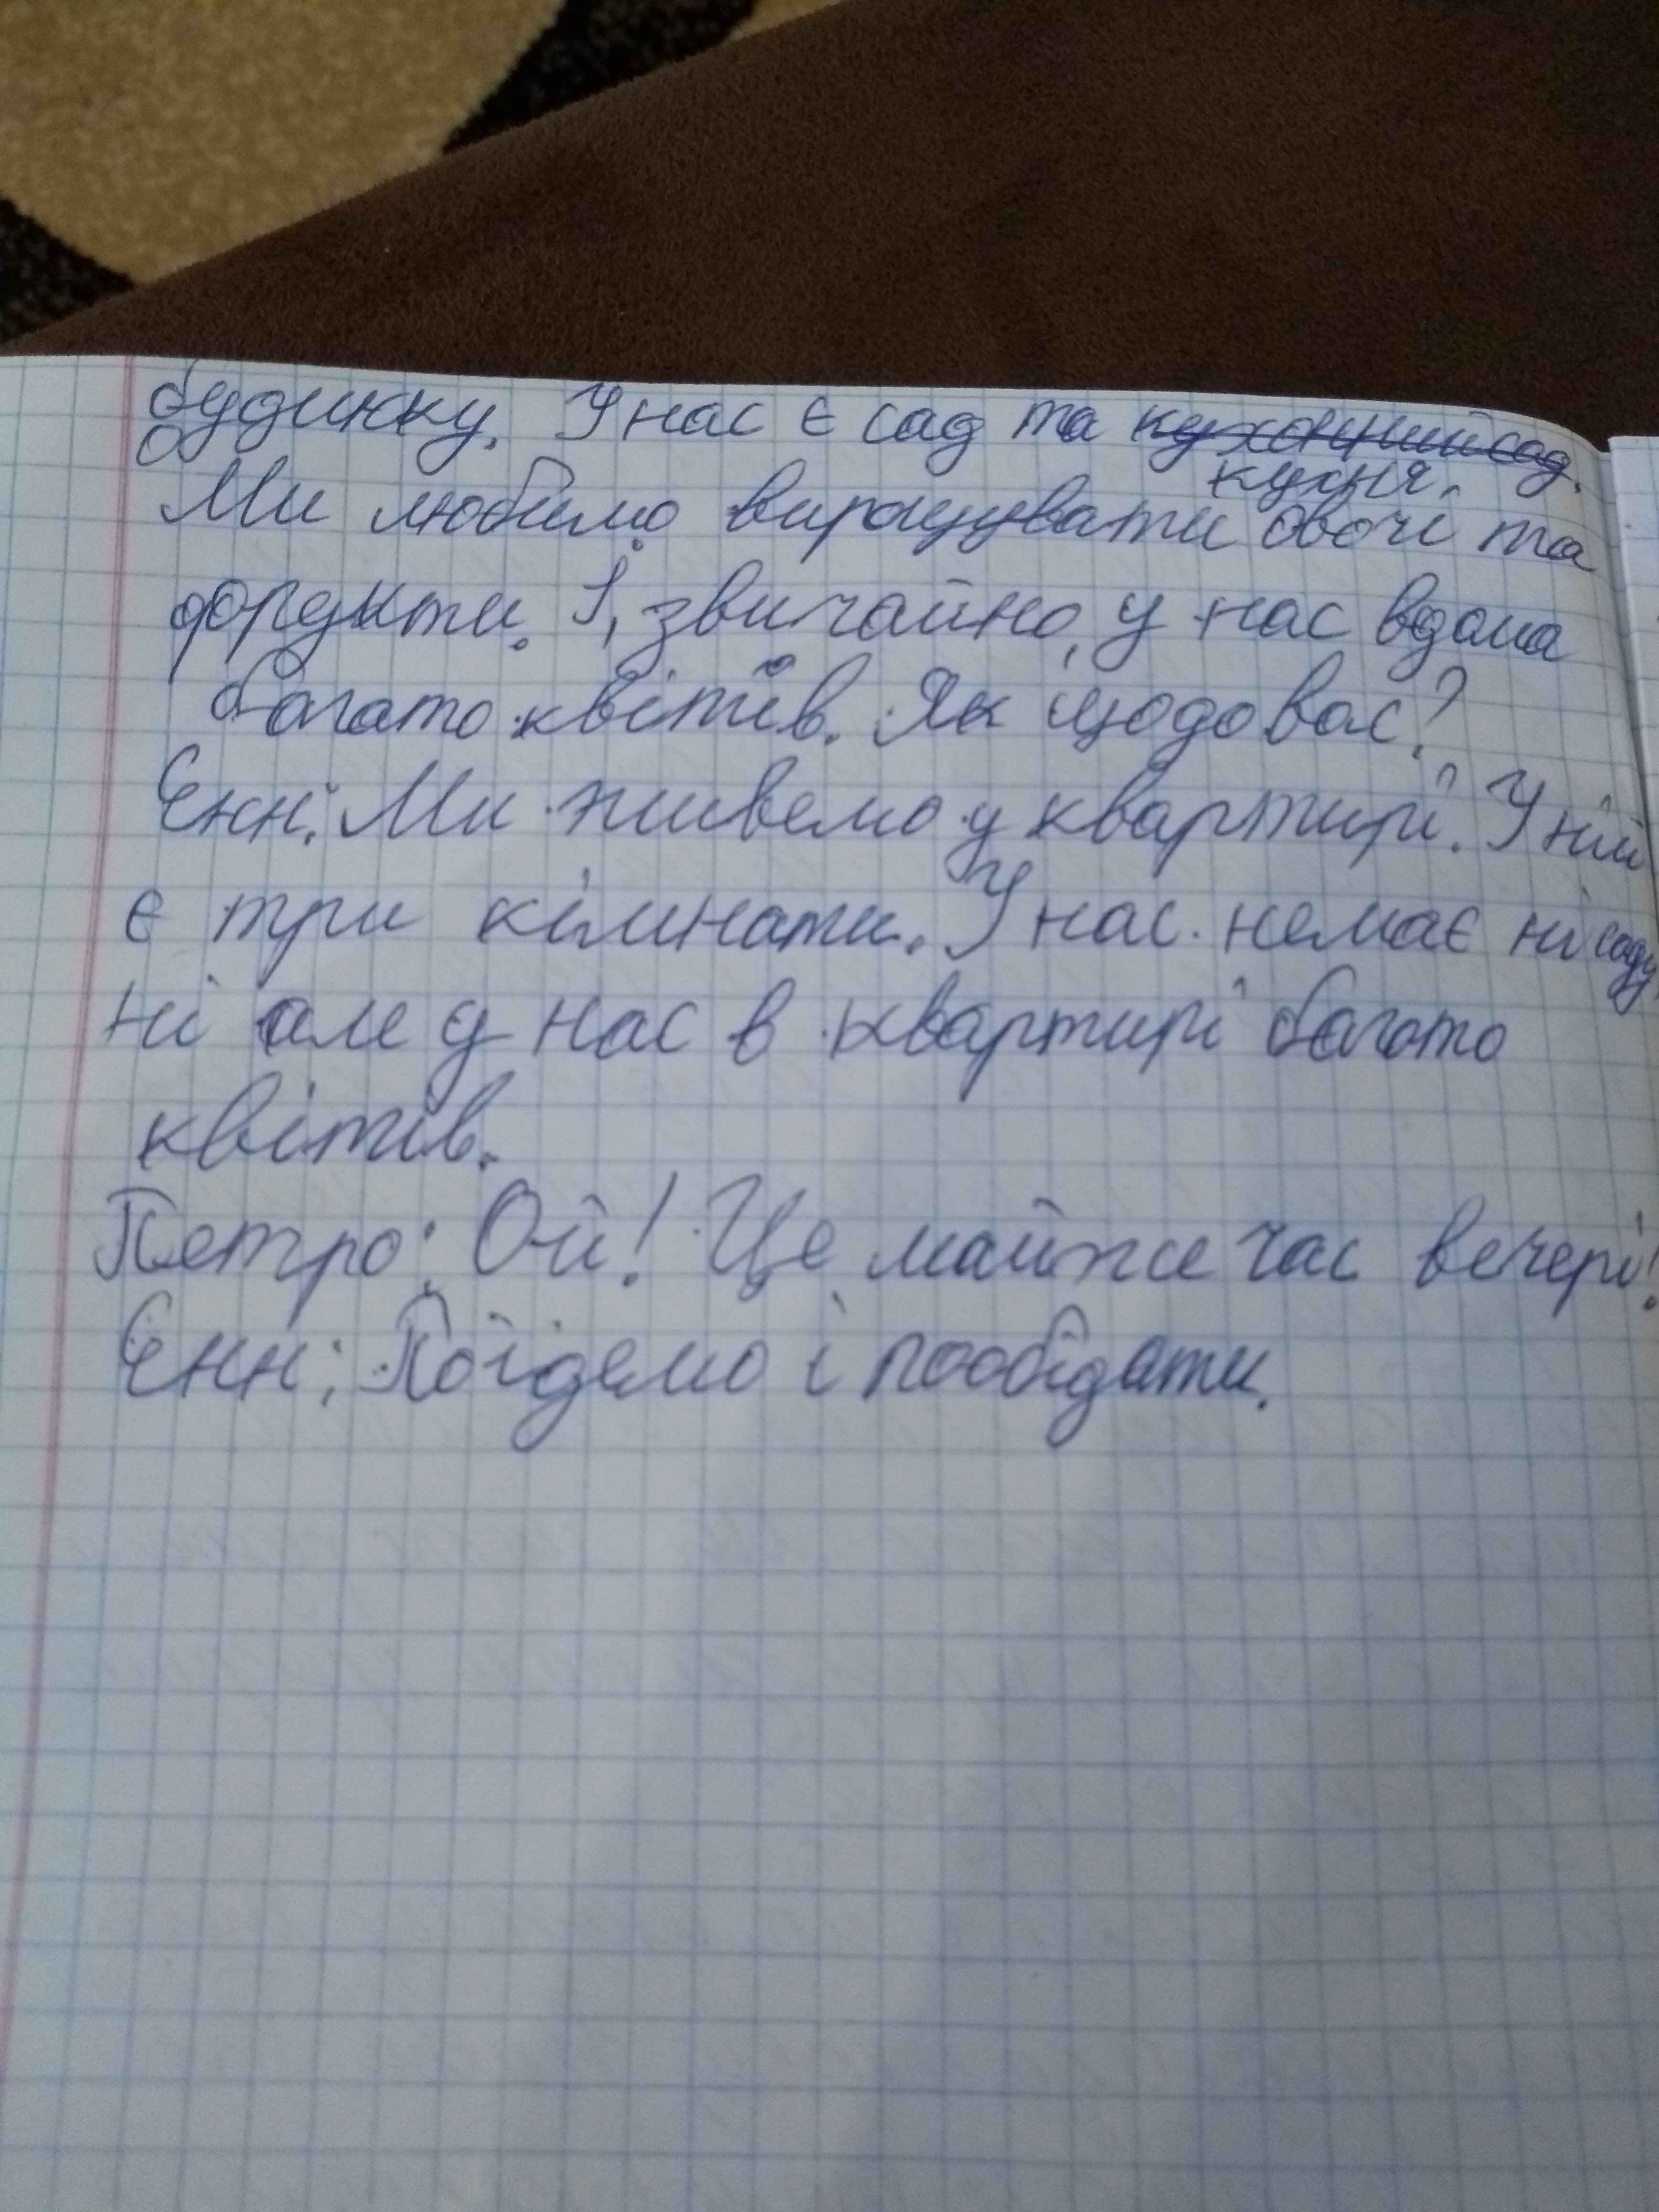 будинку. У нас є сад та кухонний сад.
кухня.
Ми любимо вирощувати овочі та
фрукти. І, звичайно, у нас вдома
багато квітів. Як щодо вас?
Єнн: Ми живемо у квартирі. У ній
є три кімнати. У нас немає ні саду,
ні але у нас в квартирі багато
квітів.
Петро: Ой! Це майже час вечері!
Єнн: Поїдемо і пообідати.